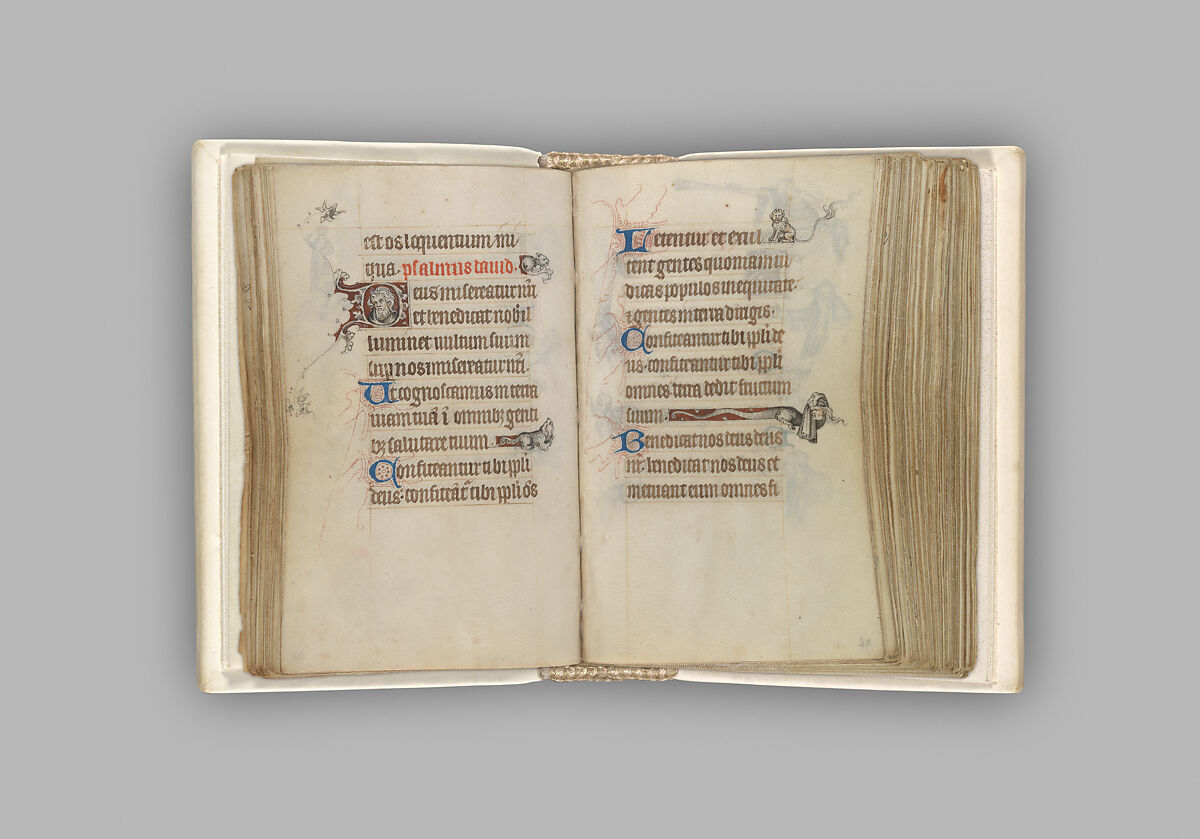 est os loquentium ini
qua. psalmus david.
Deus misereatur nr̄i
et benedicat nobis il
luminet vultum suum
suꝑ nos ⁊ misereatur nr̄i.
Ut cognoscamus in terra
viam tuā ī omnibꝫ genti
bꝫ salutare tuum.
Confiteantur tibi pp̄li
deus: confiteāt᷑ tibi pp̄li ōs
Letentur et exul
tent gentes quoniam iu
dicas populos in equitate.
⁊ gentes in terra dirigis.
Confiteantur tibi pp̄li de
us. confiteantur tibi pp̄li
omnes. terra dedit fructum
suum
Benedicat nos deus deus
nr̄. benedicat nos deus et
metuant eum omnes fi
40